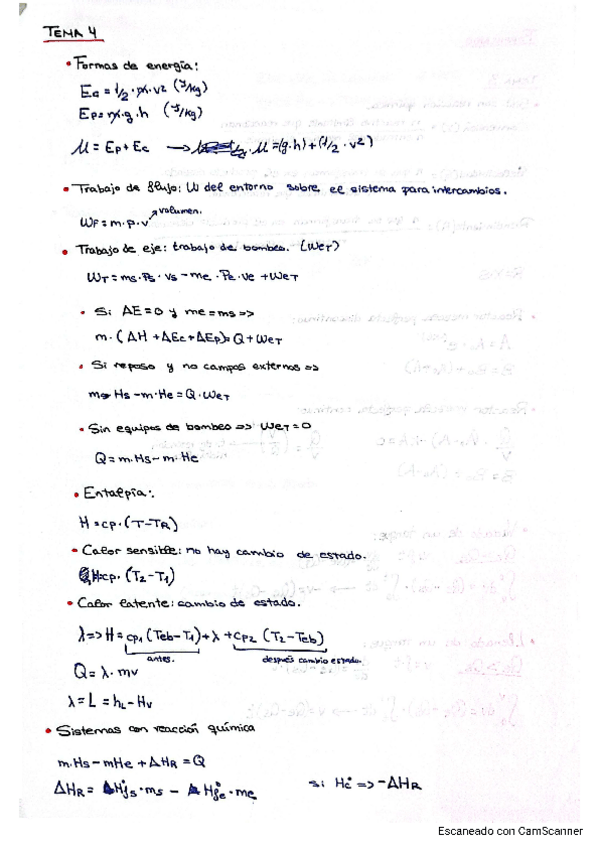 TEMA 4
• Formas de energía:
Ec = 1/2 · m · v² (J/kg)
Ep = m·g·h (J/kg)
U = Ep + Ec → U = (g·h) + (1/2 · v²)
• Trabajo de flujo: W del entorno sobre el sistema para intercambios.
volumen.
WF = m·p·v
• Trabajo de eje: trabajo de bombeo. (WeT)
WT = ms·Ps·vs - me·Pe·ve + WeT
• Si ΔE = 0 y me = ms =>
m·(ΔH + ΔEc + ΔEp) = Q + WeT
• Si reposo y no campos externos =>
m·Hs - m·He = Q·WeT
• Sin equipos de bombeo => WeT = 0
Q = m·Hs - m·He
• Entalpía:
H = cp·(T-TR)
• Calor sensible: no hay cambio de estado.
H=cp·(T2-T1)
• Calor latente: cambio de estado.
λ => H = cp1 (Teb-T1) + λ + cp2 (T2-Teb)
antes. después cambio estado.
Q = λ·mv
λ = L = hL - Hv
• Sistemas con reacción química
m·Hs - mHe + ΔHR = Q
ΔHR = Hfs°·ms - Hfe°·me si Hc° => -ΔHR
Escaneado con CamScanner